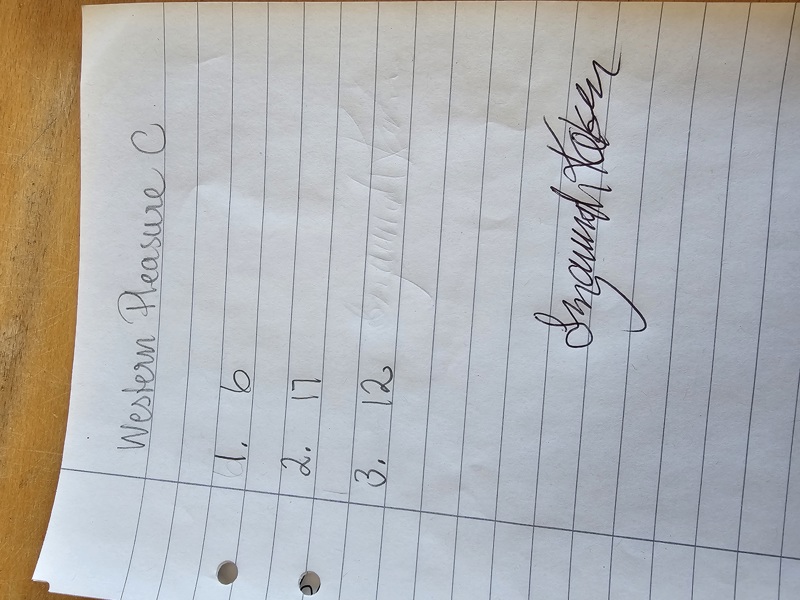 Western Pleasure C
1. 6
2. 17
3. 12